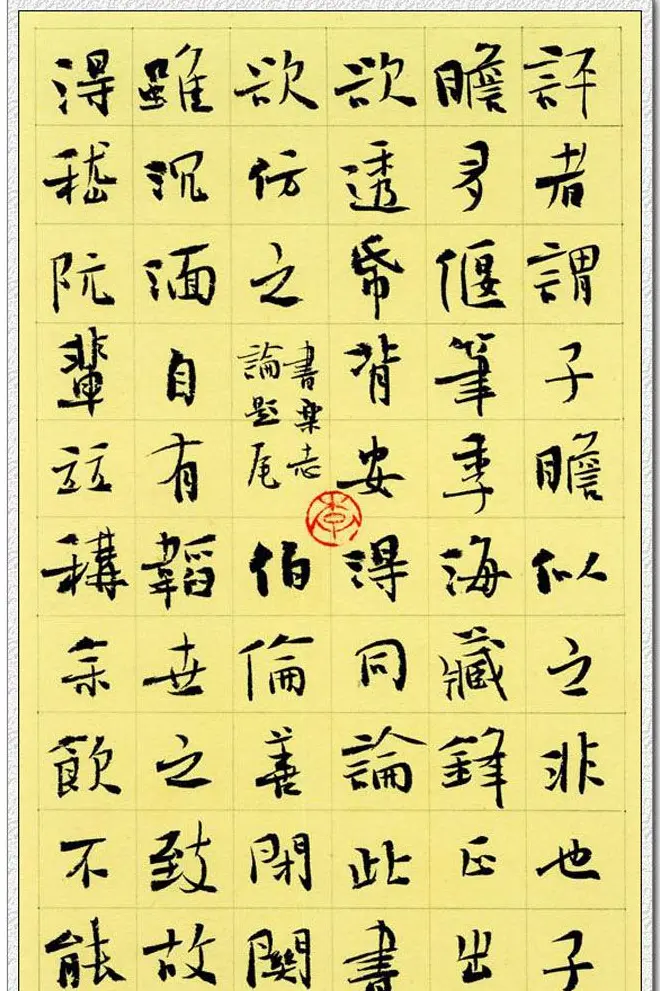 評者謂子瞻似之非也子
瞻多偃筆季海藏鋒正出
欲透帋背安得同論此書
欲仿之
書樂志
論題尾
伯倫善閉關
雖沉湎自有韜世之致故
得嵇阮輩竝稱余飲不能